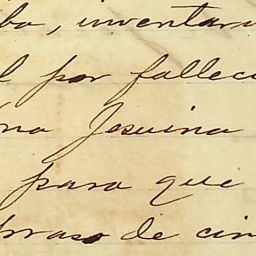 ba, inventari
l por falleci
na Jesuina
para que
praso de cin